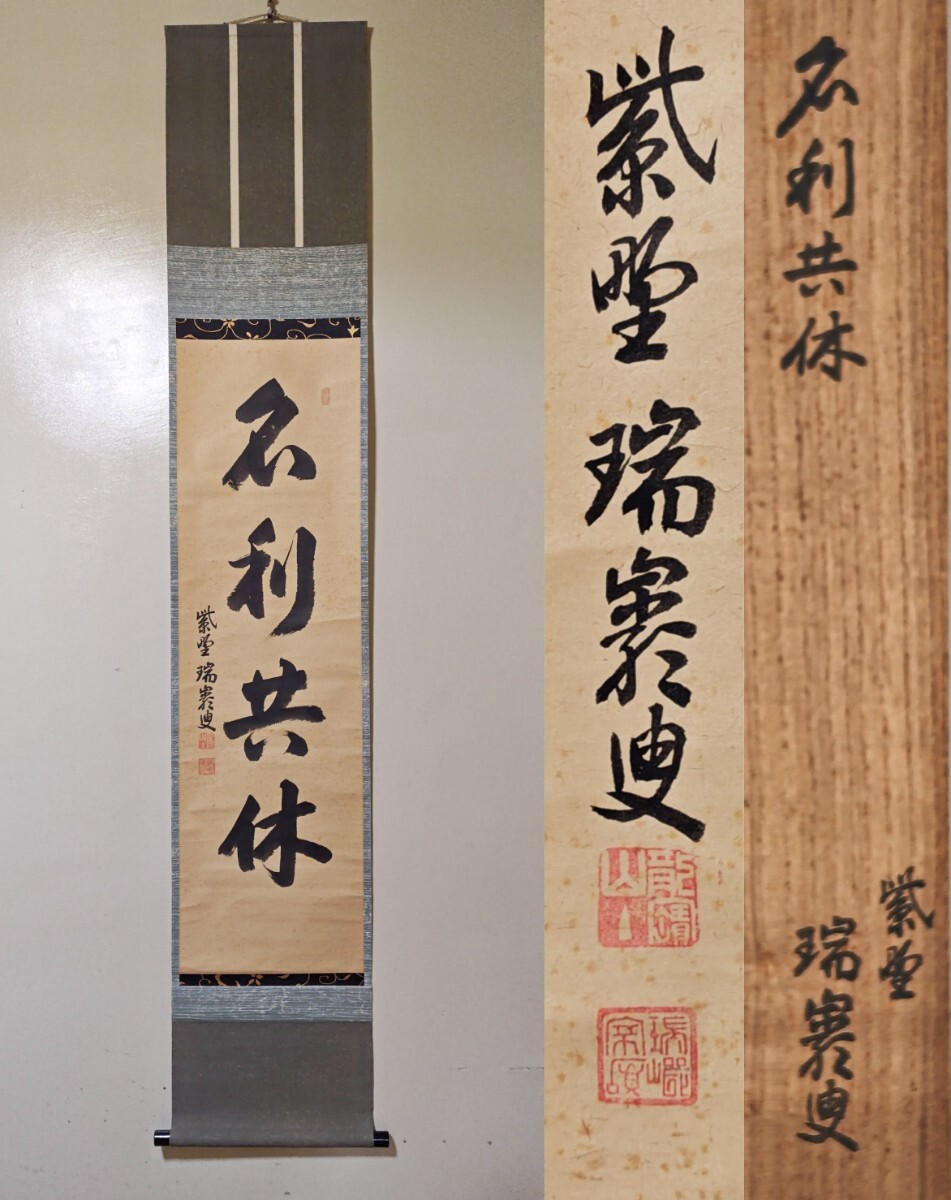 名利共休
紫野 瑞巌叟
紫野 瑞巌叟
名利共休
紫野
瑞巌叟